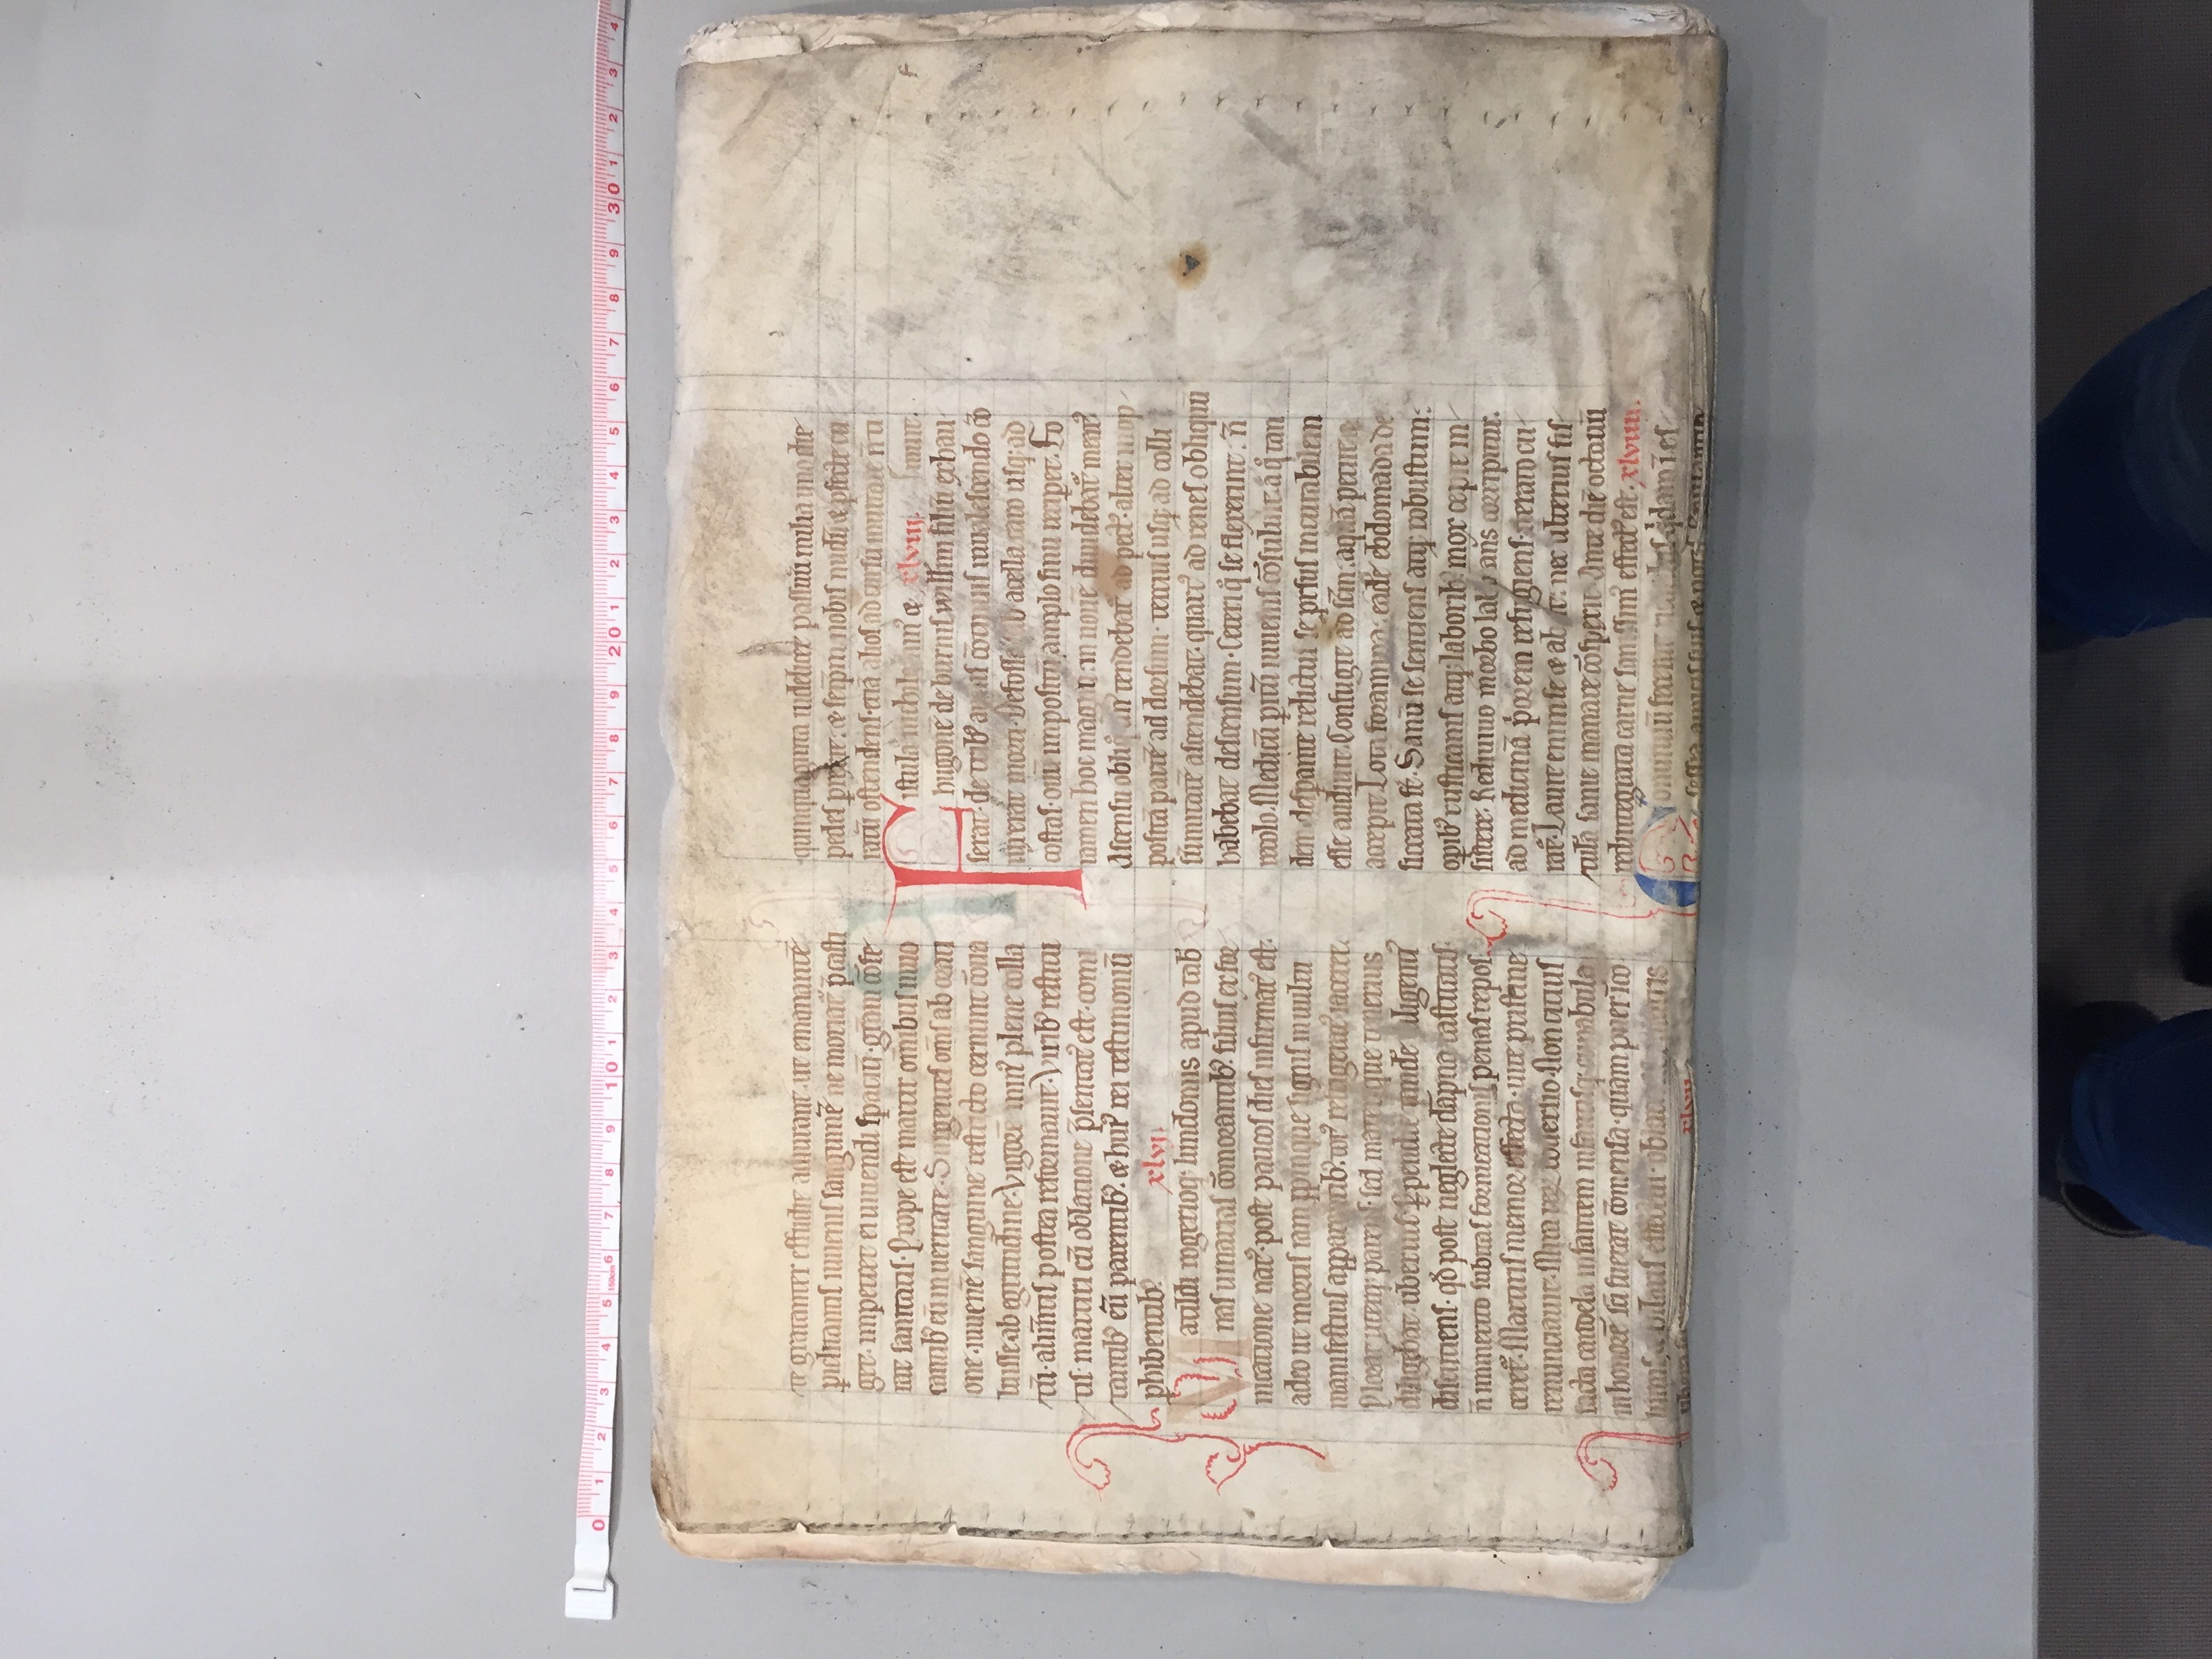 te gratanter effudit adiurant. ut emanantē
piclitantis iuuenis sanguinē ne moriat᷑ p̄casti
get. impetret ei uiuendi spaciū. grām cōfe
rat sanitatis. Prope est martir omībus inuo
cantib; eū in ueritate. Surgentes om̄s ab orati
one. iuuenē sanguine restricto cernunt cōua
luisse ab egritudine. Vigorē min᷒ plene colla
tū. alim̄tis postea reformauit. Virib; restitu
tis. martiri cū oblatione p̄sentat᷒ est. comi
tantib; eū parentib;. & hui᷒ rei testimoniū
phibentib;. xlvi.
Matildi rogerioq; lundoniis apud tab
nas uinarias cōmorantib;. filius ex for
nicatione nat᷒. post paucos dies infirmat᷒ est.
adeo ut mortis iam ꝓpinque signis in uultu
manifestius apparentib;. tot᷒ refrigerat᷒ iaceret.
Plorat uterq; parens. sed mater que tenerius
diligebat. uberius. Perpendit tandē diligenti᷒
discutiens. qd̄ post neglecte dāpna castitatis.
n̄ immerito subitas fornicationis penas repos
ceret᷑. Martiris memor effecta. uite pristine
renunciauit. Mira rerū conuersio. Non citius
facta candela infantem infantisq; cunabula
in honorē sc̄i fuerat cōmensa. quam puer īco
lumis & hilaris
xlvii
quinquaginta uidelicet passuū milia uno die
pedes & seip̄m nobis nudū & pfecte cu
ratū ostendens. etiā alios ad cursū inuitare n̄ ti
muit.
Fistula nichilomin᷒ & xlviii.
hugonē de burnis willmi filiū exhau
serat. de trib; annis cōtinuis inualescendo cō
iuxerat morti. Defossa sub acella caro usq; ad
costas. ouū impositū amplo sinu recipet. Fo
ramen hoc magnū. in nouē diuidebat᷑ meat᷒.
Ascensu obliq̊ un᷒ tendebat᷑ ad pect᷒. alter in op
positā partē ad dorsum. tercius usq; ad colli
sūmitatē ascendebat. quart᷒ ad renes obliquū
habebat descensum. Ceteri q̊ se flexerint. n̄
recolo. Medicū pitū iuuenis cōsuluit. a q̊ tan
dem despante relictus se prsus incurabilem
esse audiuit. Confugit ad sc̄m. aquā petiit &
accepit. Lota foramina. eadē ebdomada de
siccata st̄. Sanū se sentiens atq; robustum.
opib; rusticanis atq; laborib; mox cepit in
sistere. Rediuiuo morbo laborans corripitur.
ad medicinā p̊orem refugiens. iterato cu
rat᷑. Lauit enim se & abiit. nec ulterius fis
tulā sanie manare cōspexit. Ante diē octauū
redintegrata carne sanissim᷒ effect᷒ est. xlviiii.
Conuiuiū fecerat q̊dam ī es
sexia amicis suis &